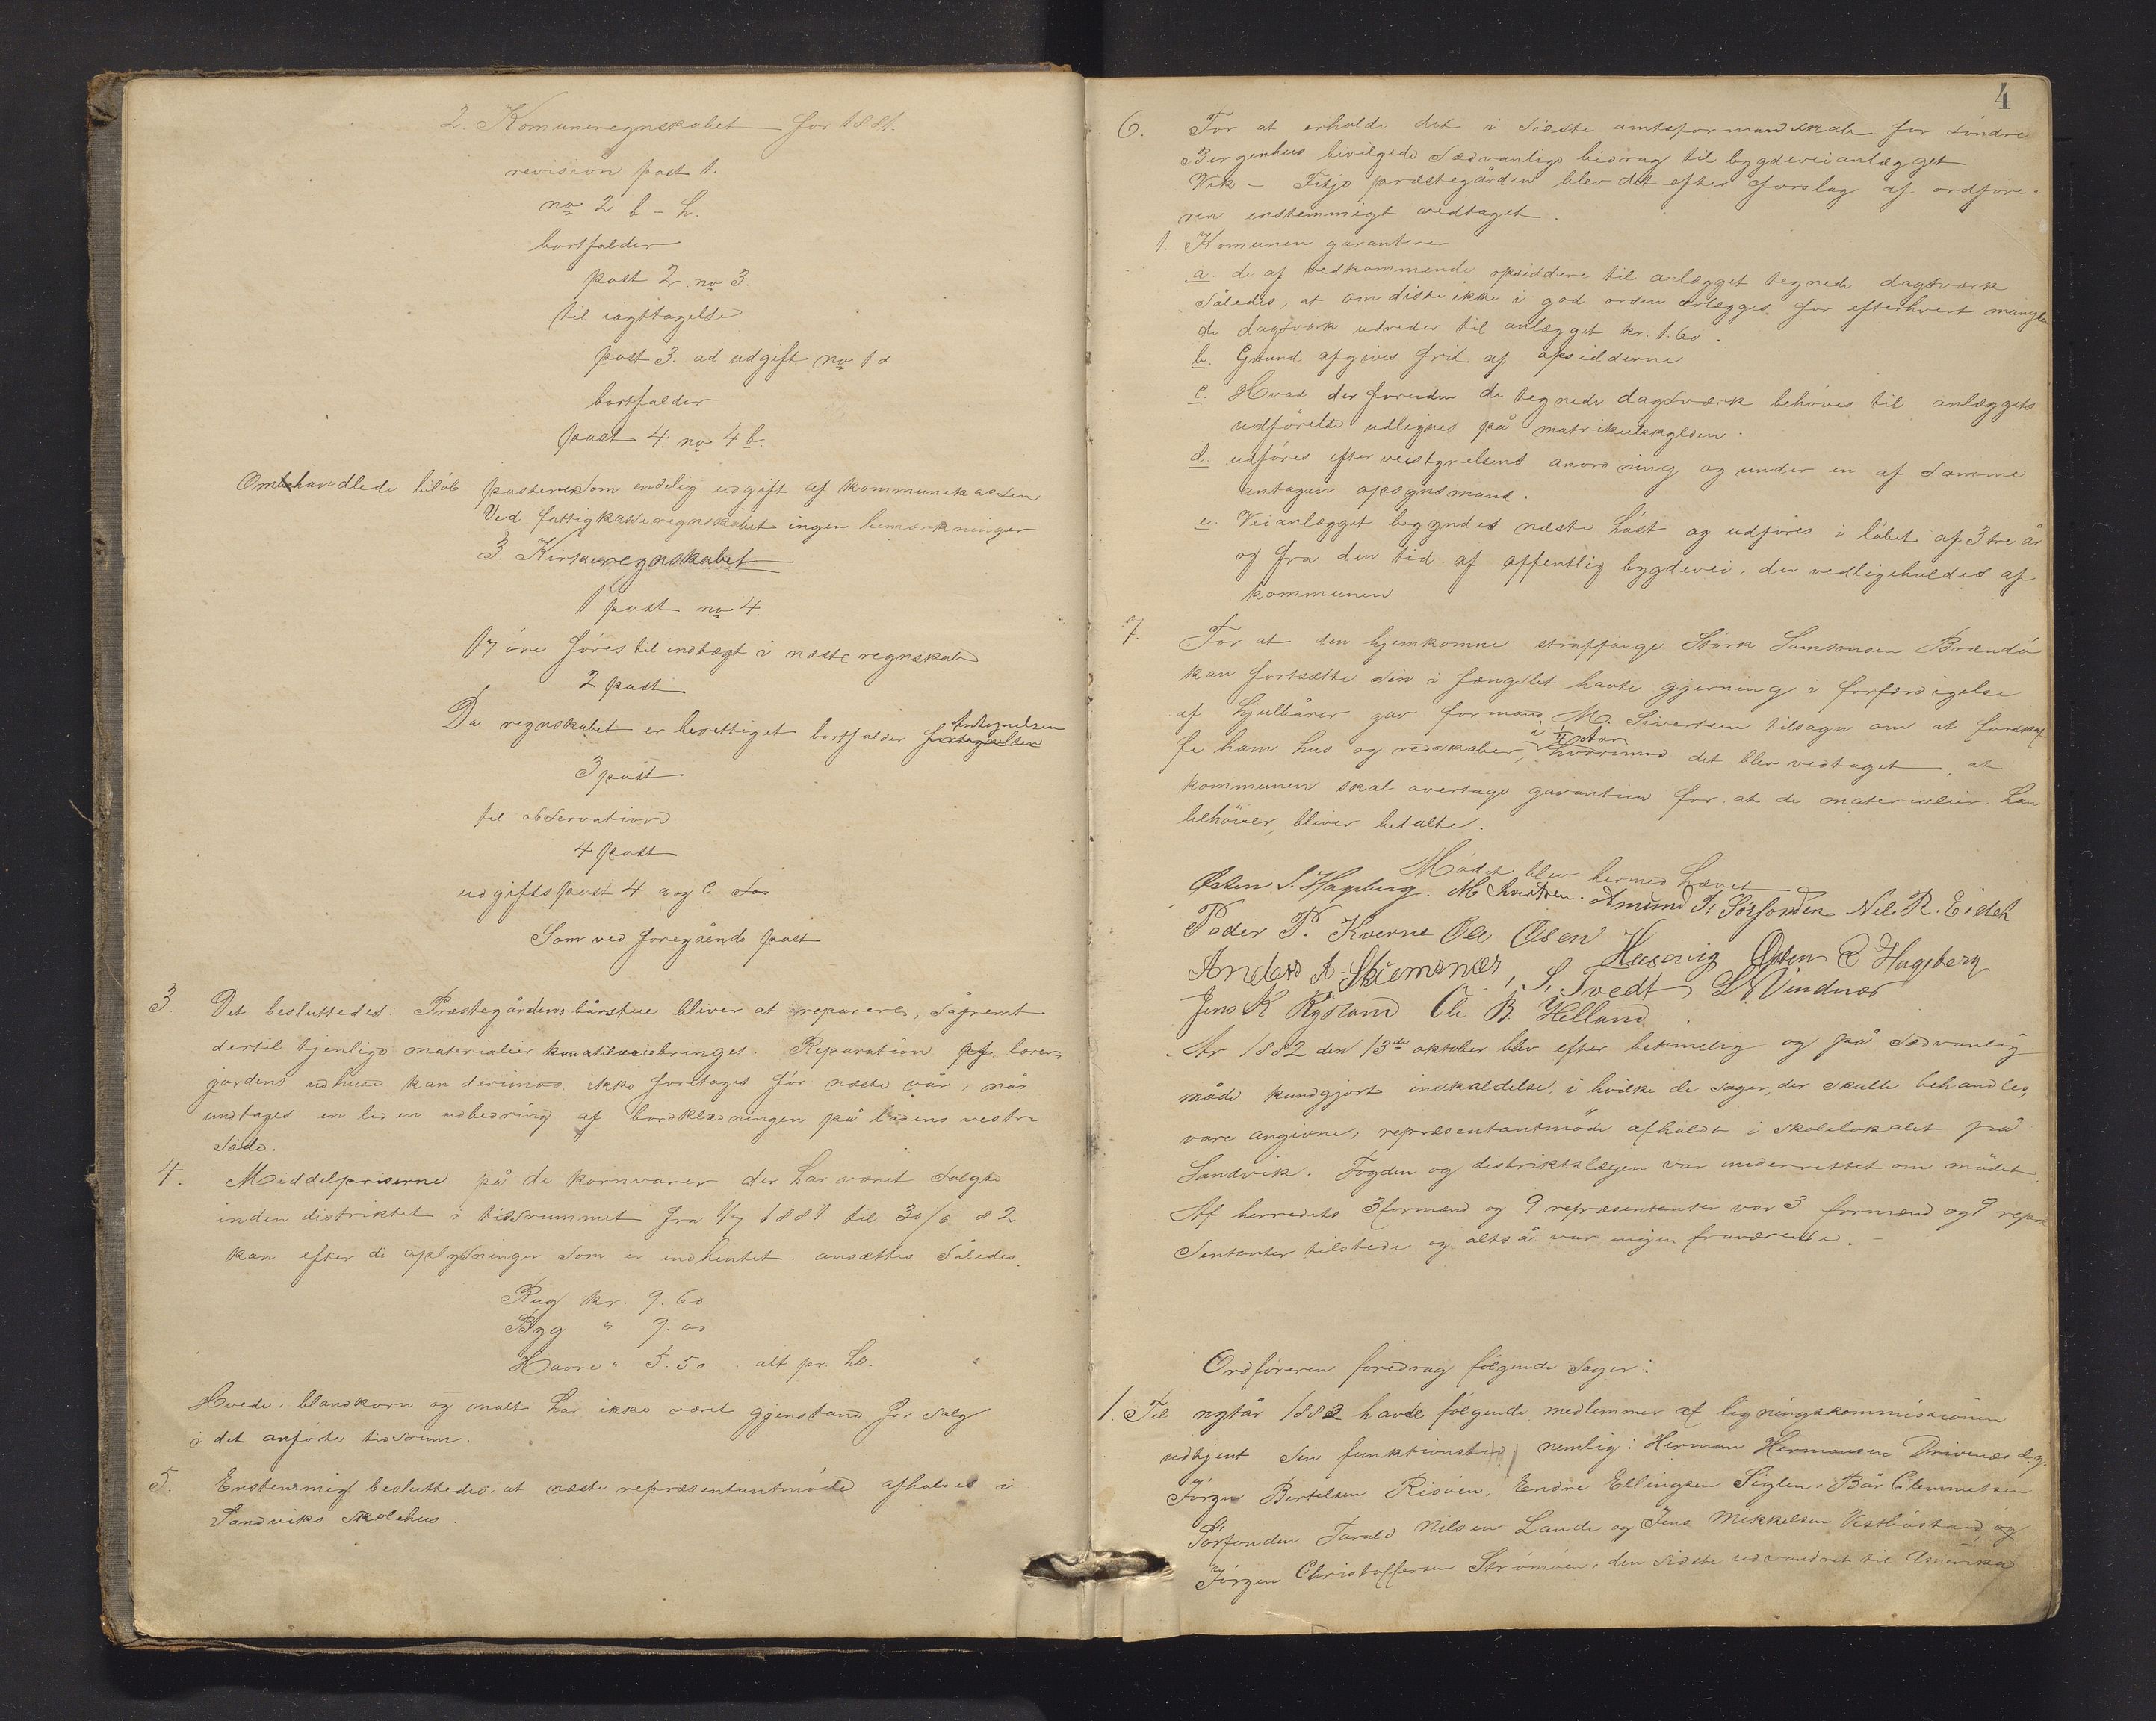 2. Komuneregnskabet for 1881.
revision post 1.
no 2 b - h.
bortfalder
post 2 no 3.
til iagttagelse
post 3. ad udgift no 1 d
bortfalder
post 4. no 4 b.
Omhandlede beløb posteres som endelig udgift af kommunekassen
Ved fattigkasseregnskabet ingen bemærkninger
3. Kirkeregnskabet
1 post no 4.
17 øre føres til indtægt i næste regnskab
2 post
Da regnskabet er berettiget bortfalder Antegnelsen
3 post
til observation
4 post
udgiftspost 4 a og c
Som ved foregående post
3. Det besluttedes: Præstegårdens bårstue bliver at reparere, såfremt
dertil tjenlige materialier kan tilveiebringes. Reparation af lærer-
gårdens udhuse kan derimod ikke foretages før næste vår, når
undtages en liden udbedring af bordklædningen på ladens vestre
side.
4. Middelpriserne på de kornvarer der har været solgte
inden distriktet i tidsrummet fra 1/7 1881 til 30/6 82
kan efter de oplysninger som er indhentet ansættes således.
Rug kr. 9.60
Byg " 9.00
Havre " 5.50. alt pr. hl.
Hvede, blandkorn og malt har ikke været gjenstand for salg
i det anførte tidsrum.
5. Enstemmig besluttedes, at næste repræsentantmøde afholdes i
Sandviks skolehus.
4
6. For at erholde det i sidste amtsformandskab for søndre
Bergenhus bevilgede sædvanlige bidrag til bygdeveianlægget
Vik - Fitje præstegården blev det efter forslag af ordføre-
ren enstemmigt vedtaget.
1. Komunen garanterer
a. de af vedkommende opsiddere til anlægget tegnede dagsværk
således, at om disse ikke i god orden erlægges, for efterhvert manglen
de dagsværk udreder til anlægget kr. 1.60.
b. Grund afgives frit af opsidderne
c. Hvad der foruden de tegnede dagsværk behøves til anlæggets
udførelse udlignes på matrikulskylden.
d. udføres efter veistyrelsens anordning og under en af samme
antagen opsynsmand.
e. Veianlægget begyndes næste høst og udføres i løbet af 3 tre år
og fra den tid af offentlig bygdevei, der vedligeholdes af
kommunen
7. For at den hjemkomne straffange Størk Samsonsen Brændø
kan fortsætte sin i fængslet havte gjerning i forfærdigelse
af hjulbårer gav formand M. Sivertsen tilsagn om at forskaf
fe ham hus og redskaber, hvorimod det blev vedtaget, at
kommunen skal overtage garantien for at de materialier, han
behøver, bliver betalte.
Mødet blev hermed hævet
Østen S. Hageberg. M Sivertsen. Amund T. Sørfonden Nils R. Eideh
Peder P. Kverne Ole Olsen Husevig Østen E Hageberg
Anders A. Skiemsnæs, S. Tvedt, Vindnæs
Jens K Rydland Ole B. Helland.
År 1882 den 13de oktober blev efter betimelig og på sædvanlig
måde kundgjort indkaldelse, i hvilke de sager, der skulle behandles,
vare angivne, repræsentantmøde afholdt i skolelokalet på
Sandvik. Fogden og distriktslægen var underrettet om mødet.
Af herredets 3 formænd og 9 repræsentanter var 3 formænd og 9 repræ
sentanter tilstede og altså var ingen fraværende.
Ordføreren foredrog følgende sager:
1. Til nytår 1882 havde følgende medlemmer af ligningskommissionen
udtjent sin funktionstid, nemlig: Herman Hermansen Drivenes
Jørgen Bertelsen Risøen, Endre Ellingsen Siglen, Bår Clemmetsen
Sørfonden Tarald Nilsen Lande og Jens Mikkelsen Vestbøstad, og
Jørgen Christoffersen Strømøen, den sidste udvandret til Amerika